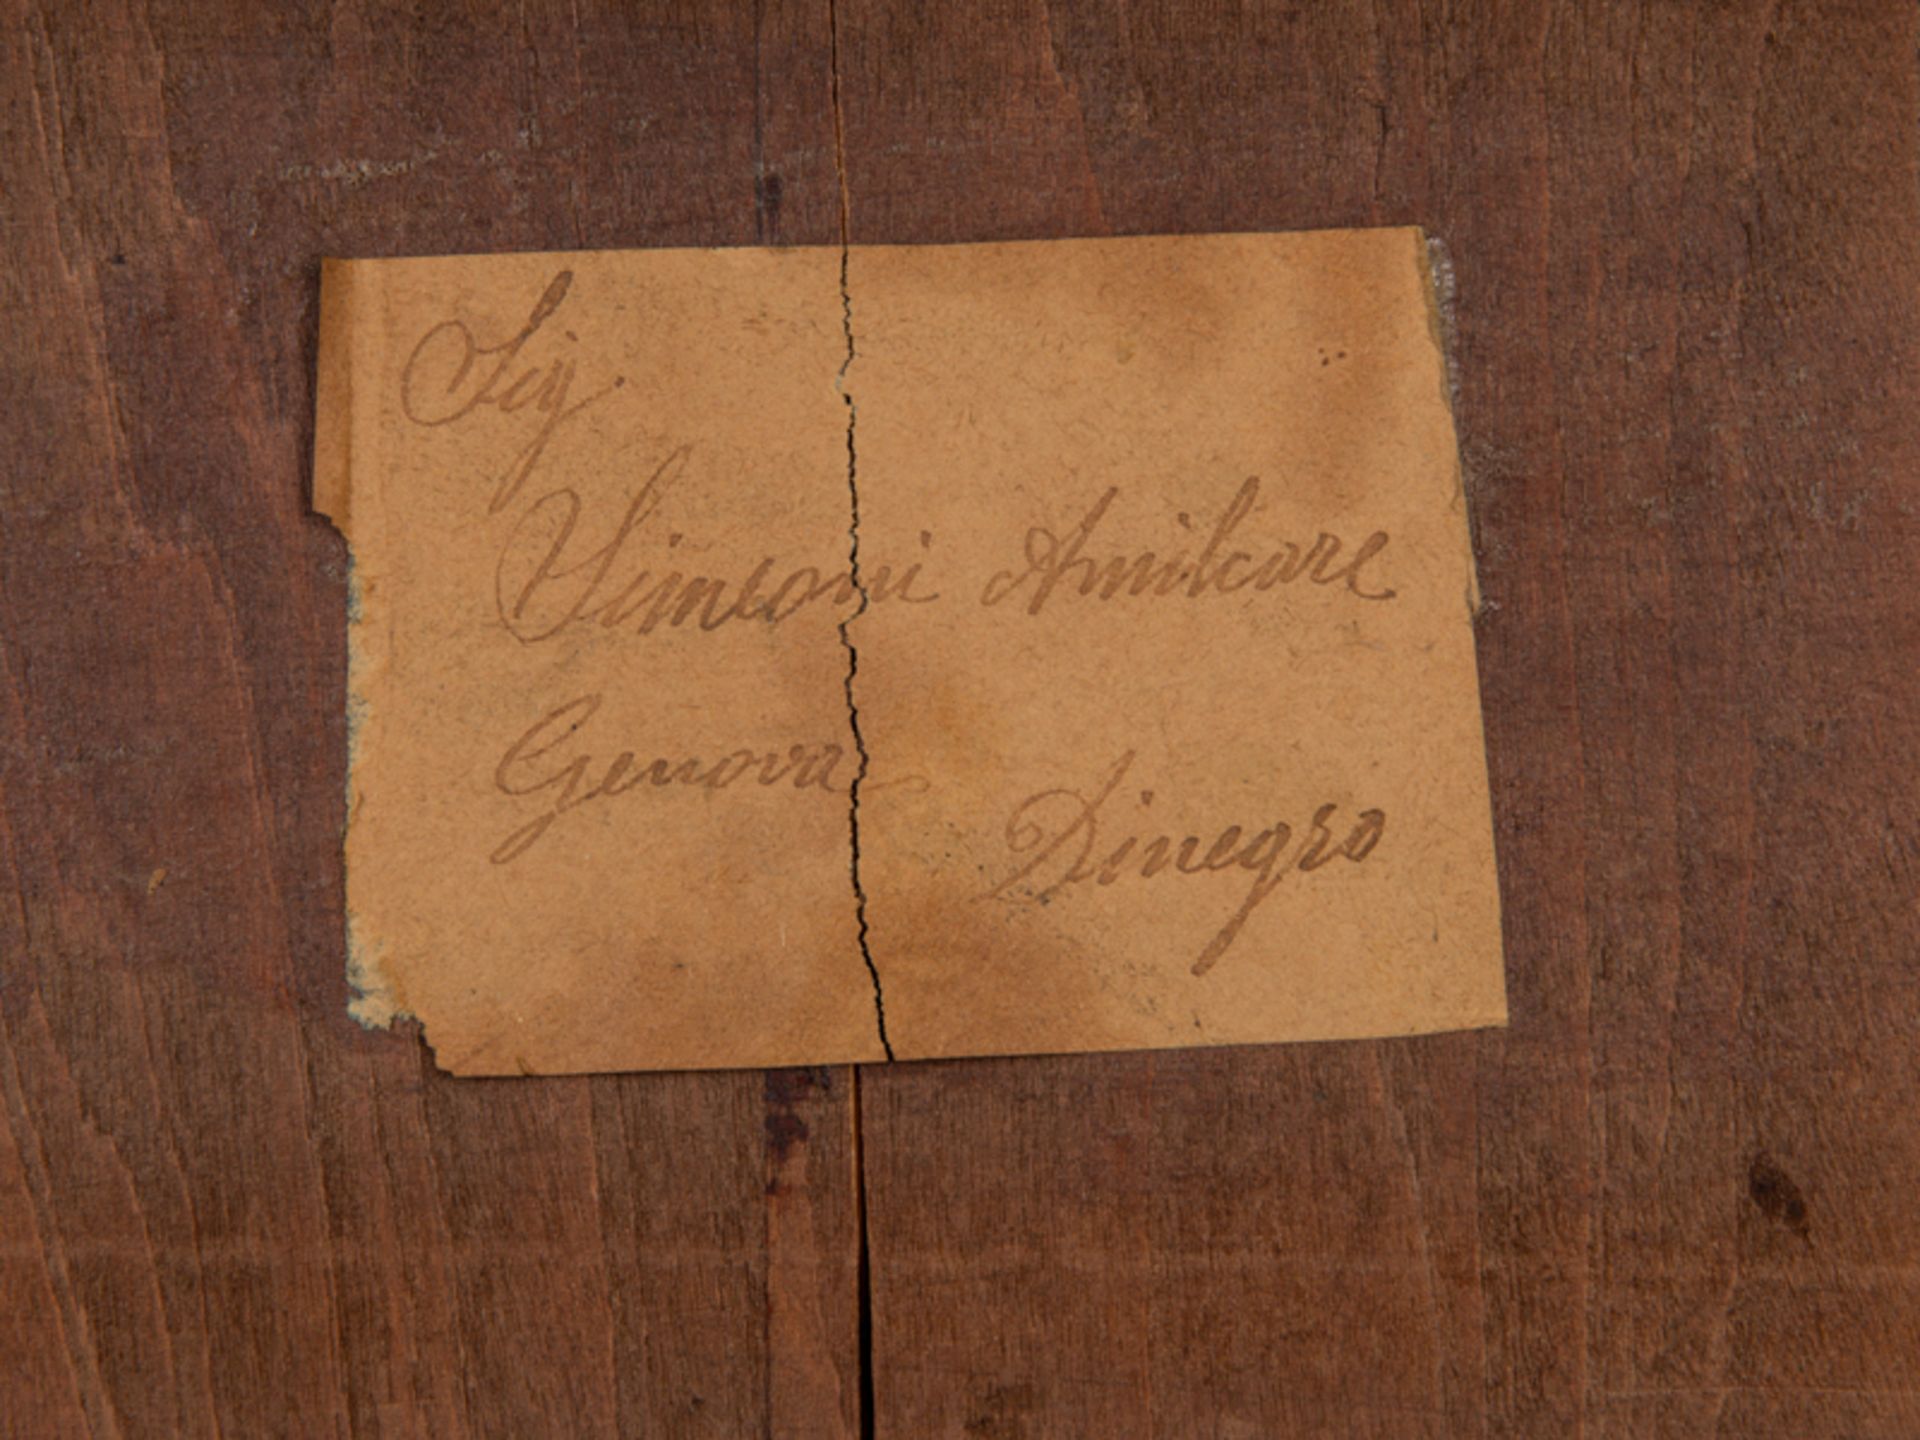 Sig.
Simeoni Amilcare
Genova
Dinegro